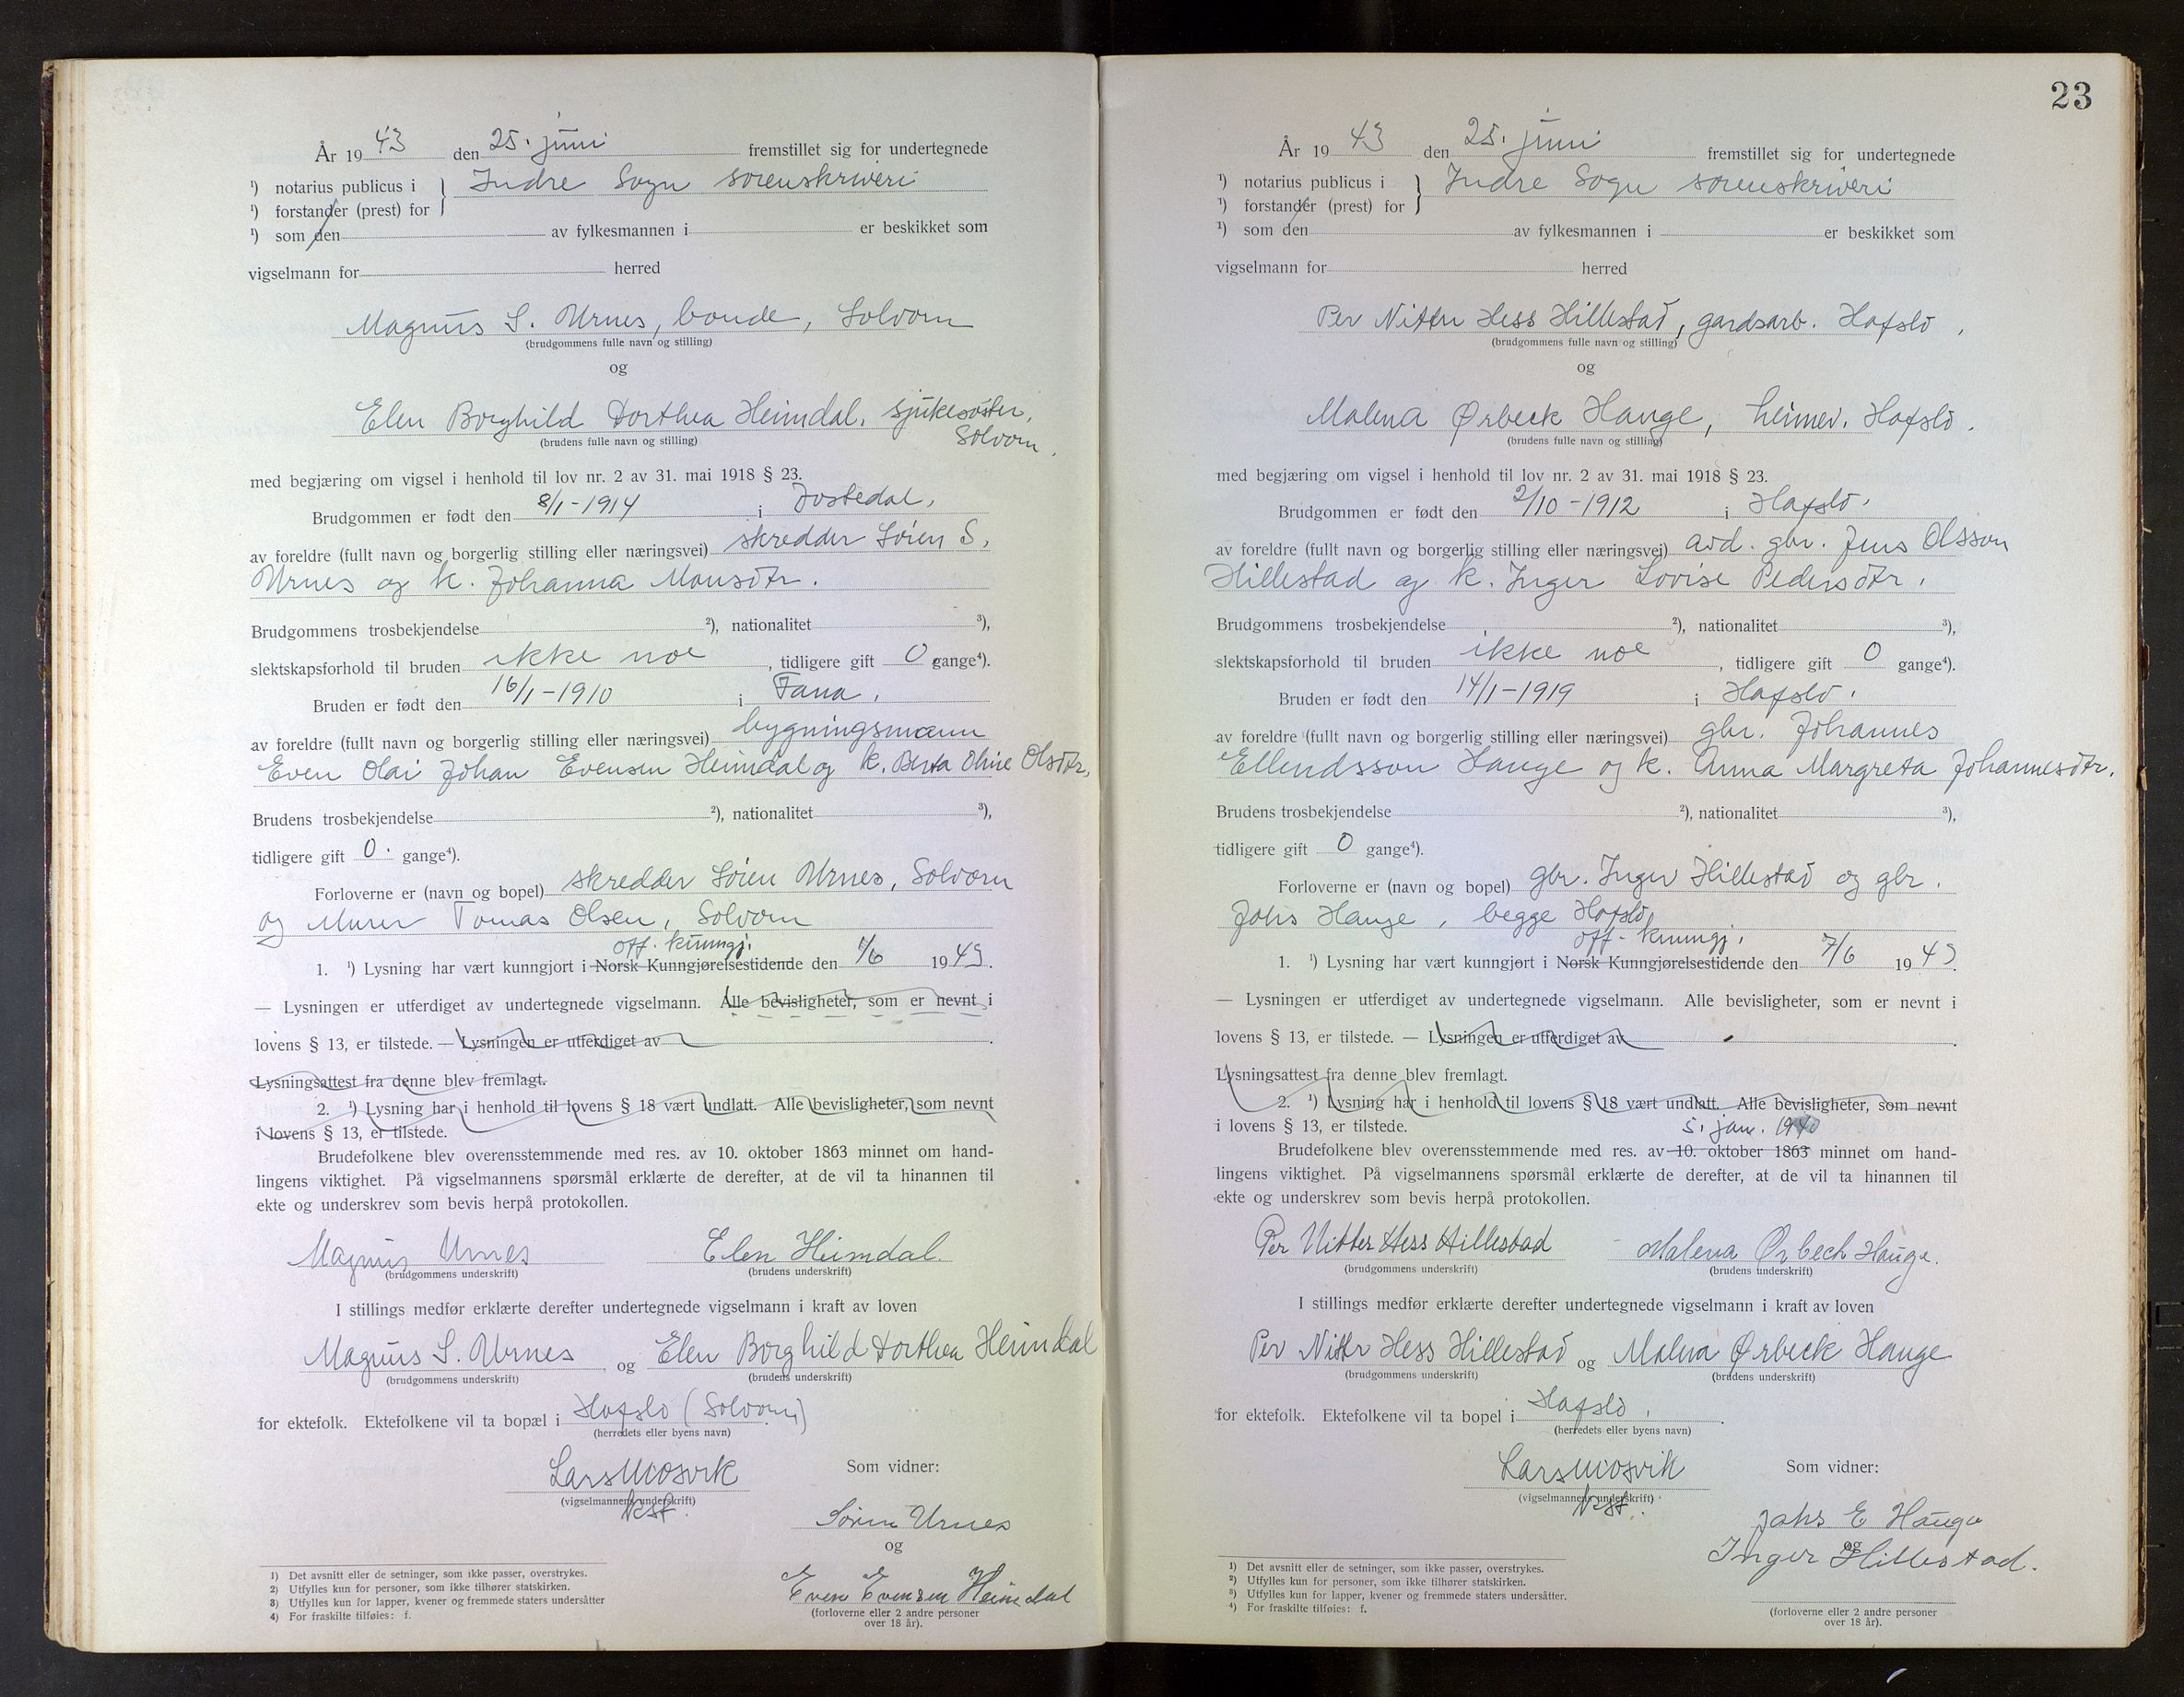 År 1943 den 25. juni fremstillet sig for undertegnede
¹) notarius publicus i } Indre Sogn sorenskriveri
¹) forstander (prest) for
¹) som den av fylkesmannen i er beskikket som
vigselmann for herred
Magnus S. Urnes, bonde, Solvorn
(brudgommens fulle navn og stilling)
og
Elen Borghild Dorthea Heimdal, sjukesøster,
Solvorn.
(brudens fulle navn og stilling)
med begjæring om vigsel i henhold til lov nr. 2 av 31. mai 1918 § 23.
Brudgommen er født den 8/1-1914 i Jostedal,
av foreldre (fullt navn og borgerlig stilling eller næringsvei) skredder Sören S.
Urnes og k. Johanna Monsdtr.
Brudgommens trosbekjendelse ²), nationalitet ³),
slektskapsforhold til bruden ikke noe, tidligere gift 0 gange⁴).
Bruden er født den 16/1-1910 i Fana.
av foreldre (fullt navn og borgerlig stilling eller næringsvei) bygningsmann
Even Olai Johan Evensen Heimdal og k. Berta Oline Olsdtr.
Brudens trosbekjendelse ²), nationalitet ³),
tidligere gift 0. gange⁴).
Forloverne er (navn og bopel) skredder Sören Urnes, Solvorn
og Murer Tomas Olsen, Solvorn
off. kunngj.
1. ¹) Lysning har vært kunngjort i Norsk Kunngjørelsestidende den 1/6 1943.
— Lysningen er utferdiget av undertegnede vigselmann. Alle bevisligheter, som er nevnt i
lovens § 13, er tilstede. — Lysningen er utferdiget av .
Lysningsattest fra denne blev fremlagt.
2. ¹) Lysning har i henhold til lovens § 18 vært undlatt. Alle bevisligheter, som nevnt
i lovens § 13, er tilstede.
Brudefolkene blev overensstemmende med res. av 10. oktober 1863 minnet om hand-
lingens viktighet. På vigselmannens spørsmål erklærte de derefter, at de vil ta hinannen til
ekte og underskrev som bevis herpå protokollen.
Magnus Urnes Elen Heimdal.
(brudgommens underskrift) (brudens underskrift)
I stillings medfør erklærte derefter undertegnede vigselmann i kraft av loven
Magnus S. Urnes og Elen Borghild Dorthea Heimdal
(brudgommens underskrift) (brudens underskrift)
for ektefolk. Ektefolkene vil ta bopæl i Hafslo (Solvorn)
(herredets eller byens navn)
Lars Mosvik Som vidner:
(vigselmannens underskrift)
kst.
Sören Urnes
og
Even Evensen Heimdal
(forloverne eller 2 andre personer
over 18 år).
1) Det avsnitt eller de setninger, som ikke passer, overstrykes.
2) Utfylles kun for personer, som ikke tilhører statskirken.
3) Utfylles kun for lapper, kvener og fremmede staters undersåtter
4) For fraskilte tilføies: f.
23
År 1943 den 25. juni fremstillet sig for undertegnede
¹) notarius publicus i } Indre Sogn sorenskriveri
¹) forstander (prest) for
¹) som den av fylkesmannen i er beskikket som
vigselmann for herred
Per Nitter Hess Hillestad, gardsarb. Hafslo.
(brudgommens fulle navn og stilling)
og
Malena Ørbeck Hauge, heimev. Hafslo.
(brudens fulle navn og stilling)
med begjæring om vigsel i henhold til lov nr. 2 av 31. mai 1918 § 23.
Brudgommen er født den 2/10-1912 i Hafslo.
av foreldre (fullt navn og borgerlig stilling eller næringsvei) avd. gbr. Jens Olsson
Hillestad og k. Inger Lovise Pedersdtr.
Brudgommens trosbekjendelse ²), nationalitet ³),
slektskapsforhold til bruden ikke noe, tidligere gift 0 gange⁴).
Bruden er født den 14/1-1919 i Hafslo.
av foreldre (fullt navn og borgerlig stilling eller næringsvei) gbr. Johannes
Ellendsson Hauge og k. Anna Margreta Johannesdtr.
Brudens trosbekjendelse ²), nationalitet ³),
tidligere gift 0 gange⁴).
Forloverne er (navn og bopel) gbr. Inger Hillestad og gbr.
Johs Hauge, begge Hafslo
off. kunngj.
1. ¹) Lysning har vært kunngjort i Norsk Kunngjørelsestidende den 7/6 1943.
— Lysningen er utferdiget av undertegnede vigselmann. Alle bevisligheter, som er nevnt i
lovens § 13, er tilstede. — Lysningen er utferdiget av .
Lysningsattest fra denne blev fremlagt.
2. ¹) Lysning har i henhold til lovens § 18 vært undlatt. Alle bevisligheter, som nevnt
i lovens § 13, er tilstede. 5. jan. 1940
Brudefolkene blev overensstemmende med res. av 10. oktober 1863 minnet om hand-
lingens viktighet. På vigselmannens spørsmål erklærte de derefter, at de vil ta hinannen til
ekte og underskrev som bevis herpå protokollen.
Per Nitter Hess Hillestad Malena Ørbech Hauge.
(brudgommens underskrift) (brudens underskrift)
I stillings medfør erklærte derefter undertegnede vigselmann i kraft av loven
Per Nitter Hess Hillestad og Malena Ørbeck Hauge
(brudgommens underskrift) (brudens underskrift)
for ektefolk. Ektefolkene vil ta bopel i Hafslo.
(herredets eller byens navn)
Lars Mosvik Som vidner:
(vigselmannens underskrift)
kst.
Johs E Hauge
og
Inger Hillestad.
(forloverne eller 2 andre personer
over 18 år).
1) Det avsnitt eller de setninger, som ikke passer, overstrykes.
2) Utfylles kun for personer, som ikke tilhører statskirken.
3) Utfylles kun for lapper, kvener og fremmede staters undersåtter.
4) For fraskilte tilføies: f.